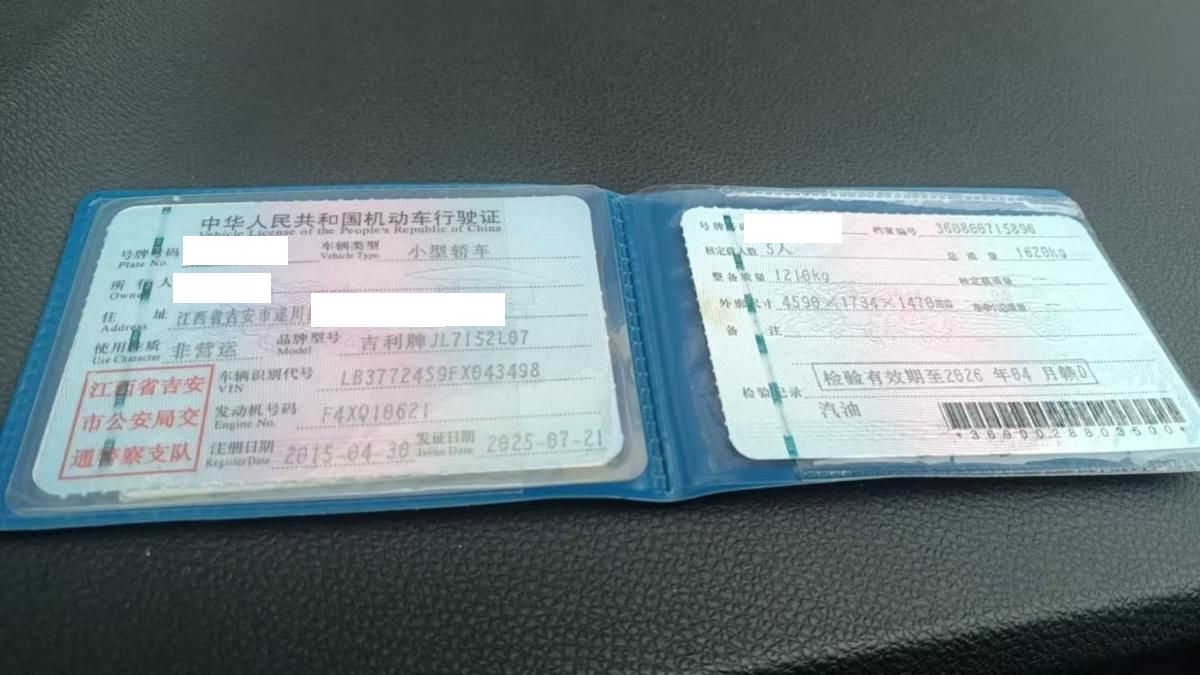 中华人民共和国机动车行驶证
Vehicle License of the People's Republic of China
号牌号码 Plate No. 车辆类型 Vehicle Type 小型轿车
所有人 Owner
住址 Address 江西省吉安市遂川县
使用性质 Use Character 非营运 品牌型号 Model 吉利牌JL7152L07
车辆识别代号 VIN LB3772459FX043498
发动机号码 Engine No. F4XQ10621
注册日期 Register Date 2015-04-30 发证日期 Issue Date 2025-07-21
江西省吉安
市公安局交
通警察支队
号牌号码 档案编号 360800715896
核定载人数 5人 总质量 1620kg
整备质量 1210kg 核定载质量
外廓尺寸 4590×1734×1470mm
备注
检验记录 检验有效期至2026年04月赣D
汽油
*3690028803500*